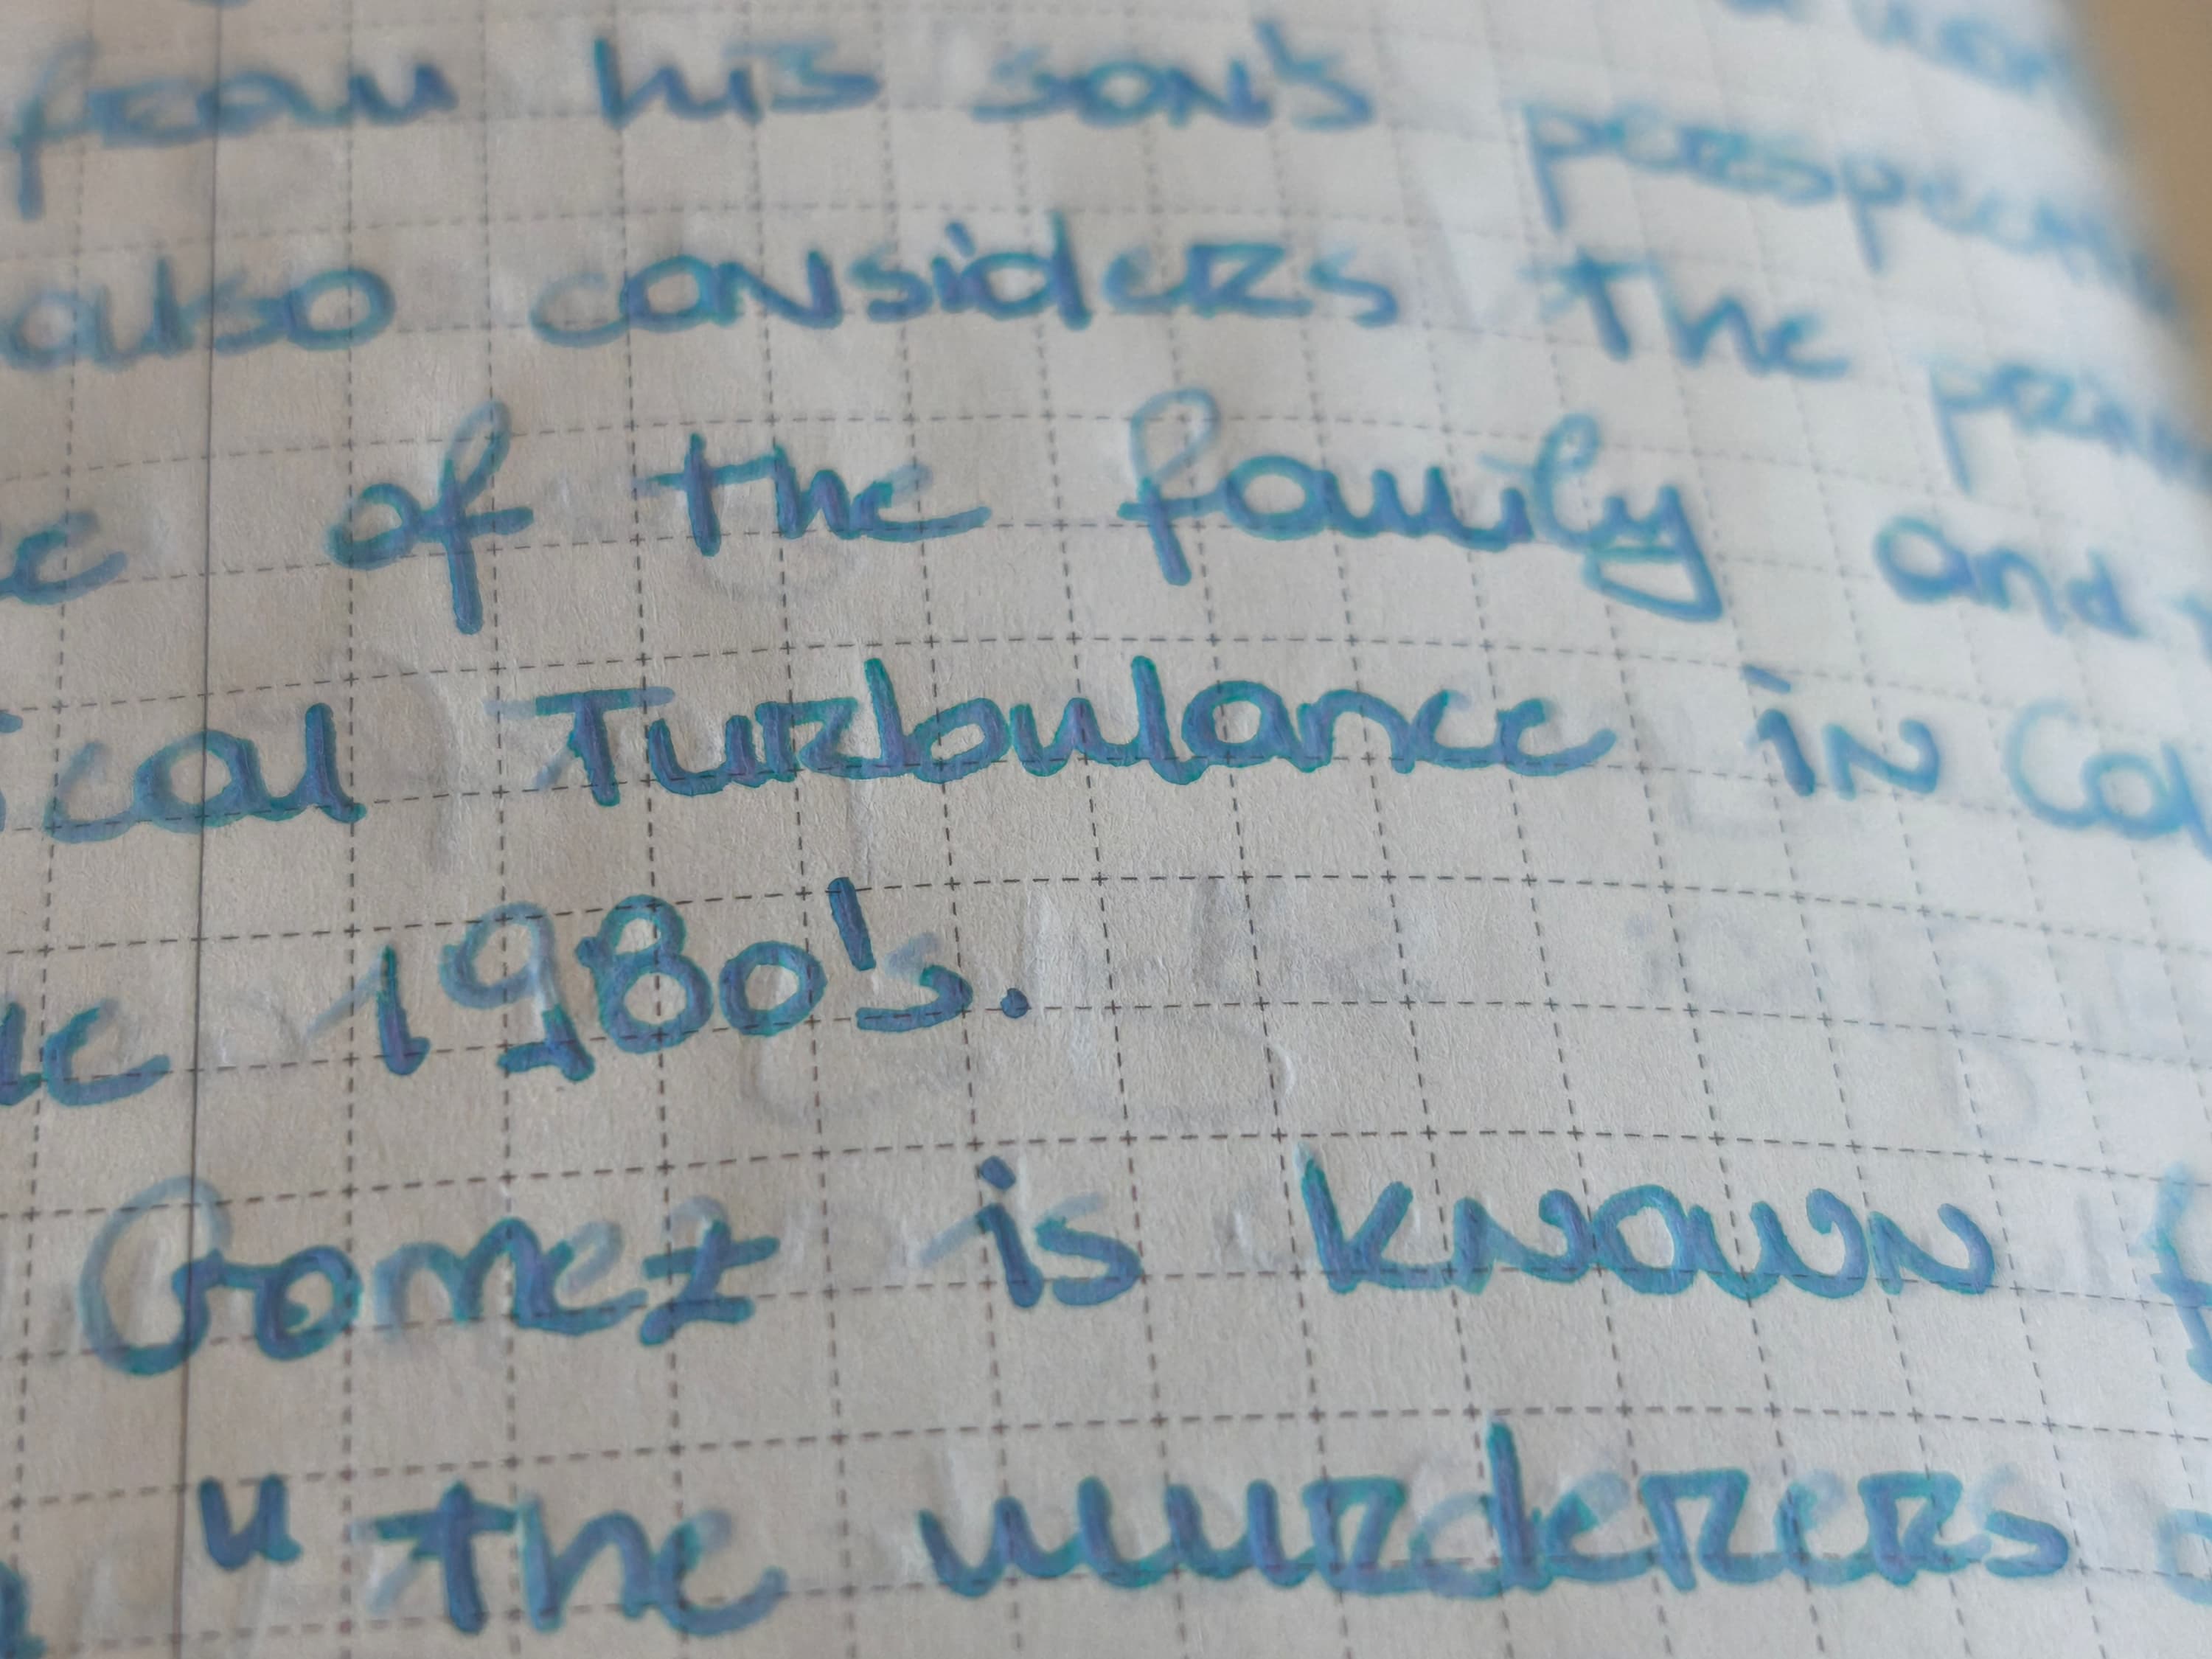 from his son's
also considers the
of the family and
ical Turbulance in
1980's.
Gomez is known
" the murderers